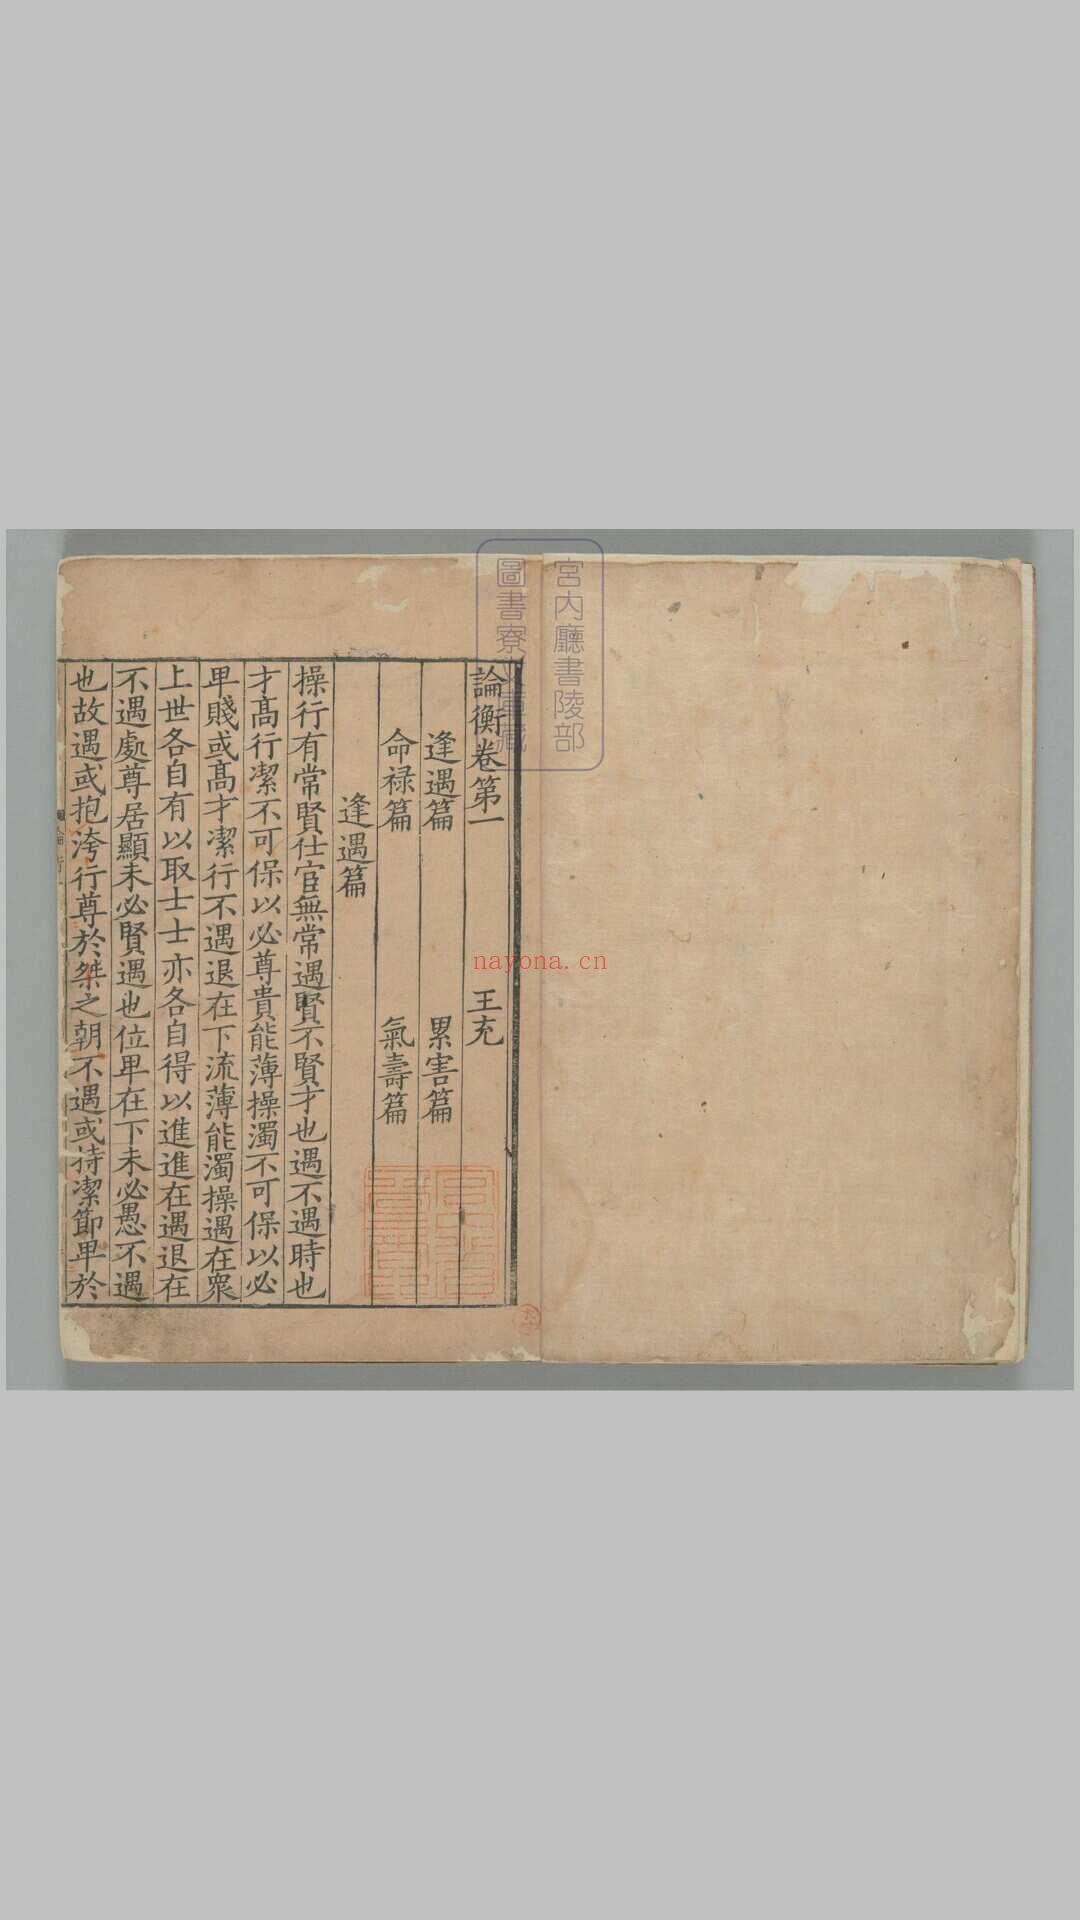 宮内廳書陵部
圖書寮文庫藏
論衡卷第一 王充
逢遇篇 累害篇
命禄篇 氣壽篇
逢遇篇
操行有常賢仕宦無常遇賢不賢才也遇不遇時也
才髙行潔不可保以必尊貴能薄操濁不可保以必
卑賤或髙才潔行不遇退在下流薄能濁操遇在衆
上世各自有以取士士亦各自得以進進在遇退在
不遇處尊居顯未必賢遇也位卑在下未必愚不遇
也故遇或抱洿行尊於桀之朝不遇或持潔節卑於
nayona.cn